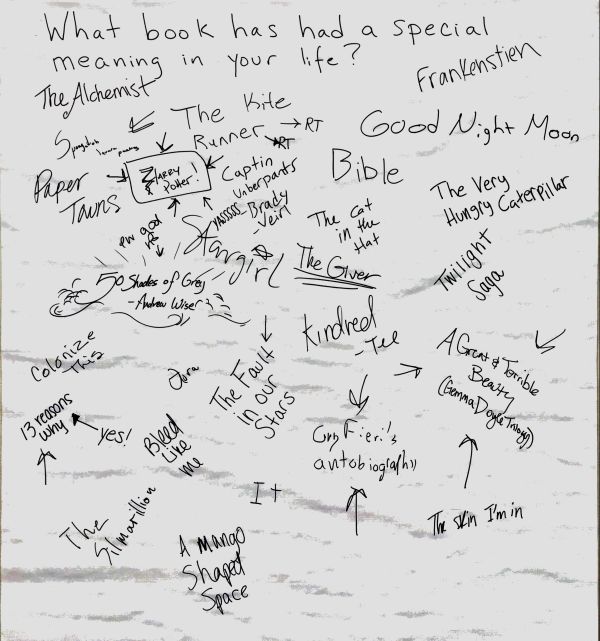 What book has had a special
meaning in your life?
Frankenstien
The Alchemist
The Kite
Runner → RT
→ RT
Good Night Moon
Harry
Potter!
Captin
Unberpants
Bible
Paper
Towns
YASSSSS
Brady
The Very
Hungry Caterpillar
The Cat
in the
Hat
Stargirl
The Giver
Twilight
Saga
50 Shades of Grey
- Andrew Wiser
Kindred
- Tee
A Great & Terrible
Beauty
(Gemma Doyle Trilogy)
Colonize
This
The Fault
in our
Stars
13 reasons
why
yes!
Bleed
Like
me
Guy Fieri's
autobiography
It
The Skin I'm in
The
Silmarillion
A Mango
Shaped
Space